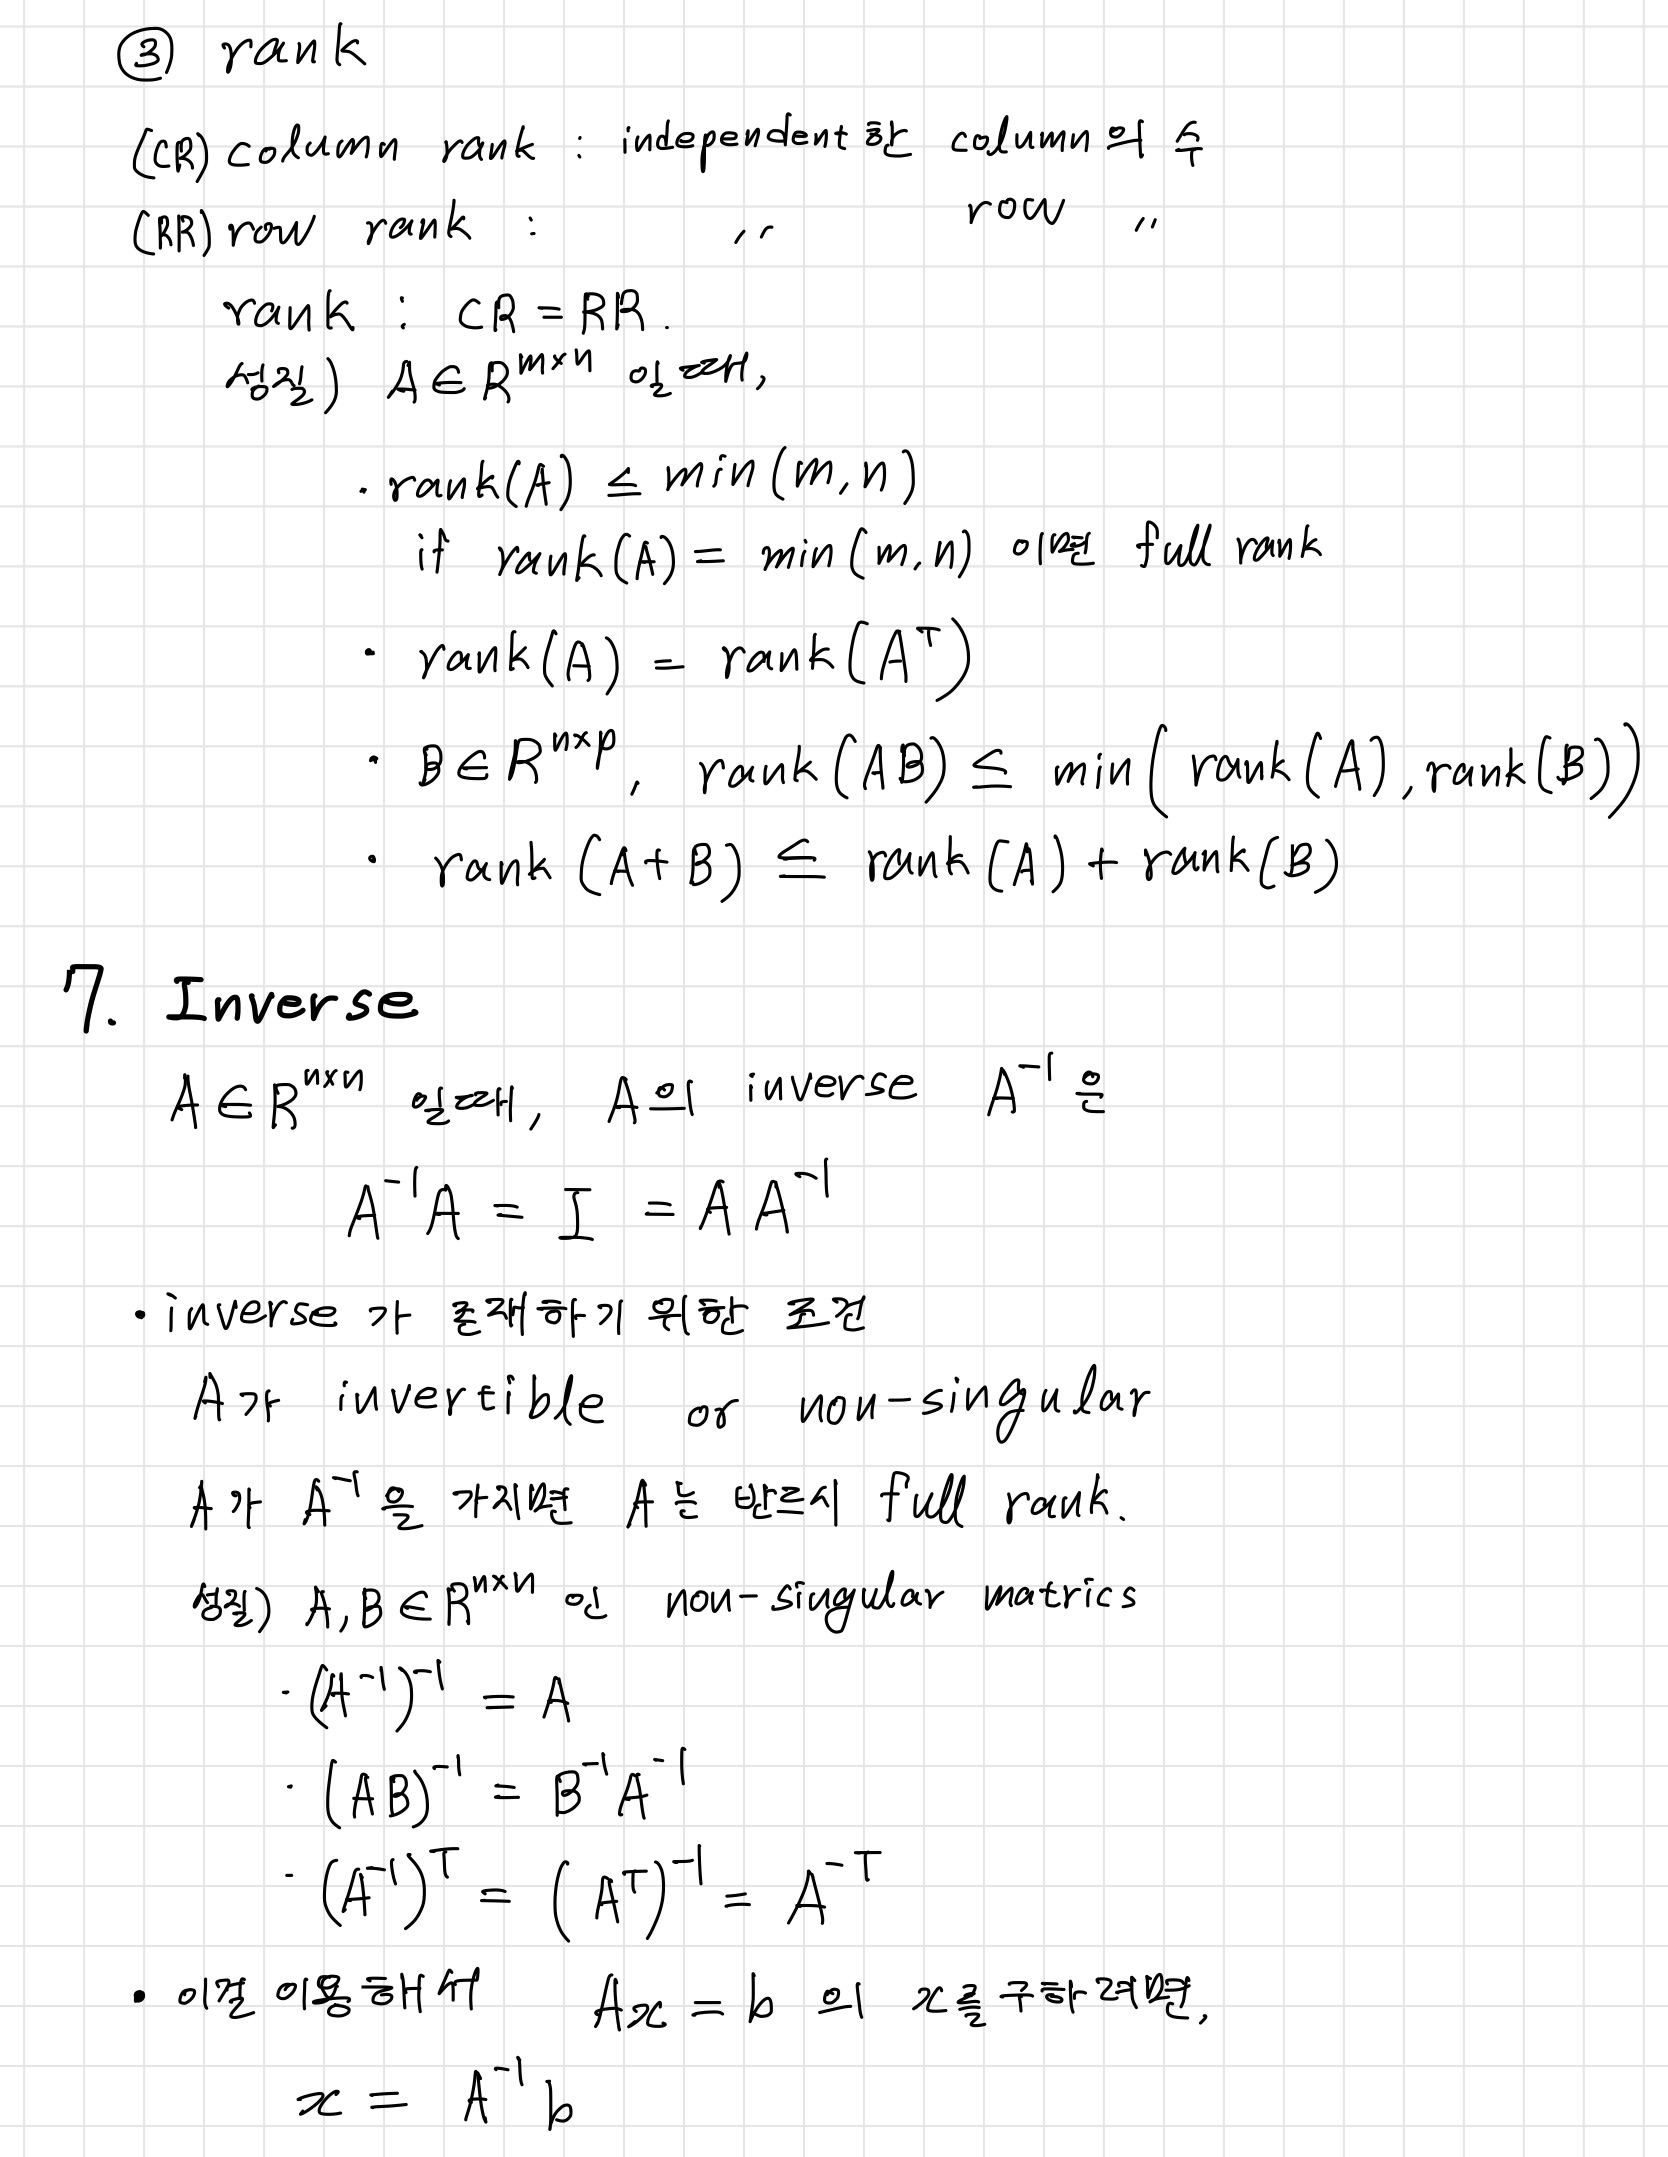 ③ rank
(CR) column rank : independent한 column의 수
(RR) row rank : 〃 row 〃
rank : CR = RR.
성질) A∈R^{m×n} 일때,
· rank(A) ≤ min(m,n)
if rank(A) = min(m,n) 이면 full rank
· rank(A) = rank(A^T)
· B∈R^{n×p}, rank(AB) ≤ min(rank(A), rank(B))
· rank(A+B) ≤ rank(A) + rank(B)
7. Inverse
A∈R^{n×n} 일때, A의 inverse A^{-1}은
A^{-1}A = I = AA^{-1}
• inverse가 존재하기 위한 조건
A가 invertible or non-singular
A가 A^{-1}을 가지면 A는 반드시 full rank.
성질) A, B∈R^{n×n} 인 non-singular matrics
· (A^{-1})^{-1} = A
· (AB)^{-1} = B^{-1}A^{-1}
· (A^{-1})^T = (A^T)^{-1} = A^{-T}
• 이걸 이용해서 Ax = b 의 x를 구하려면,
x = A^{-1}b